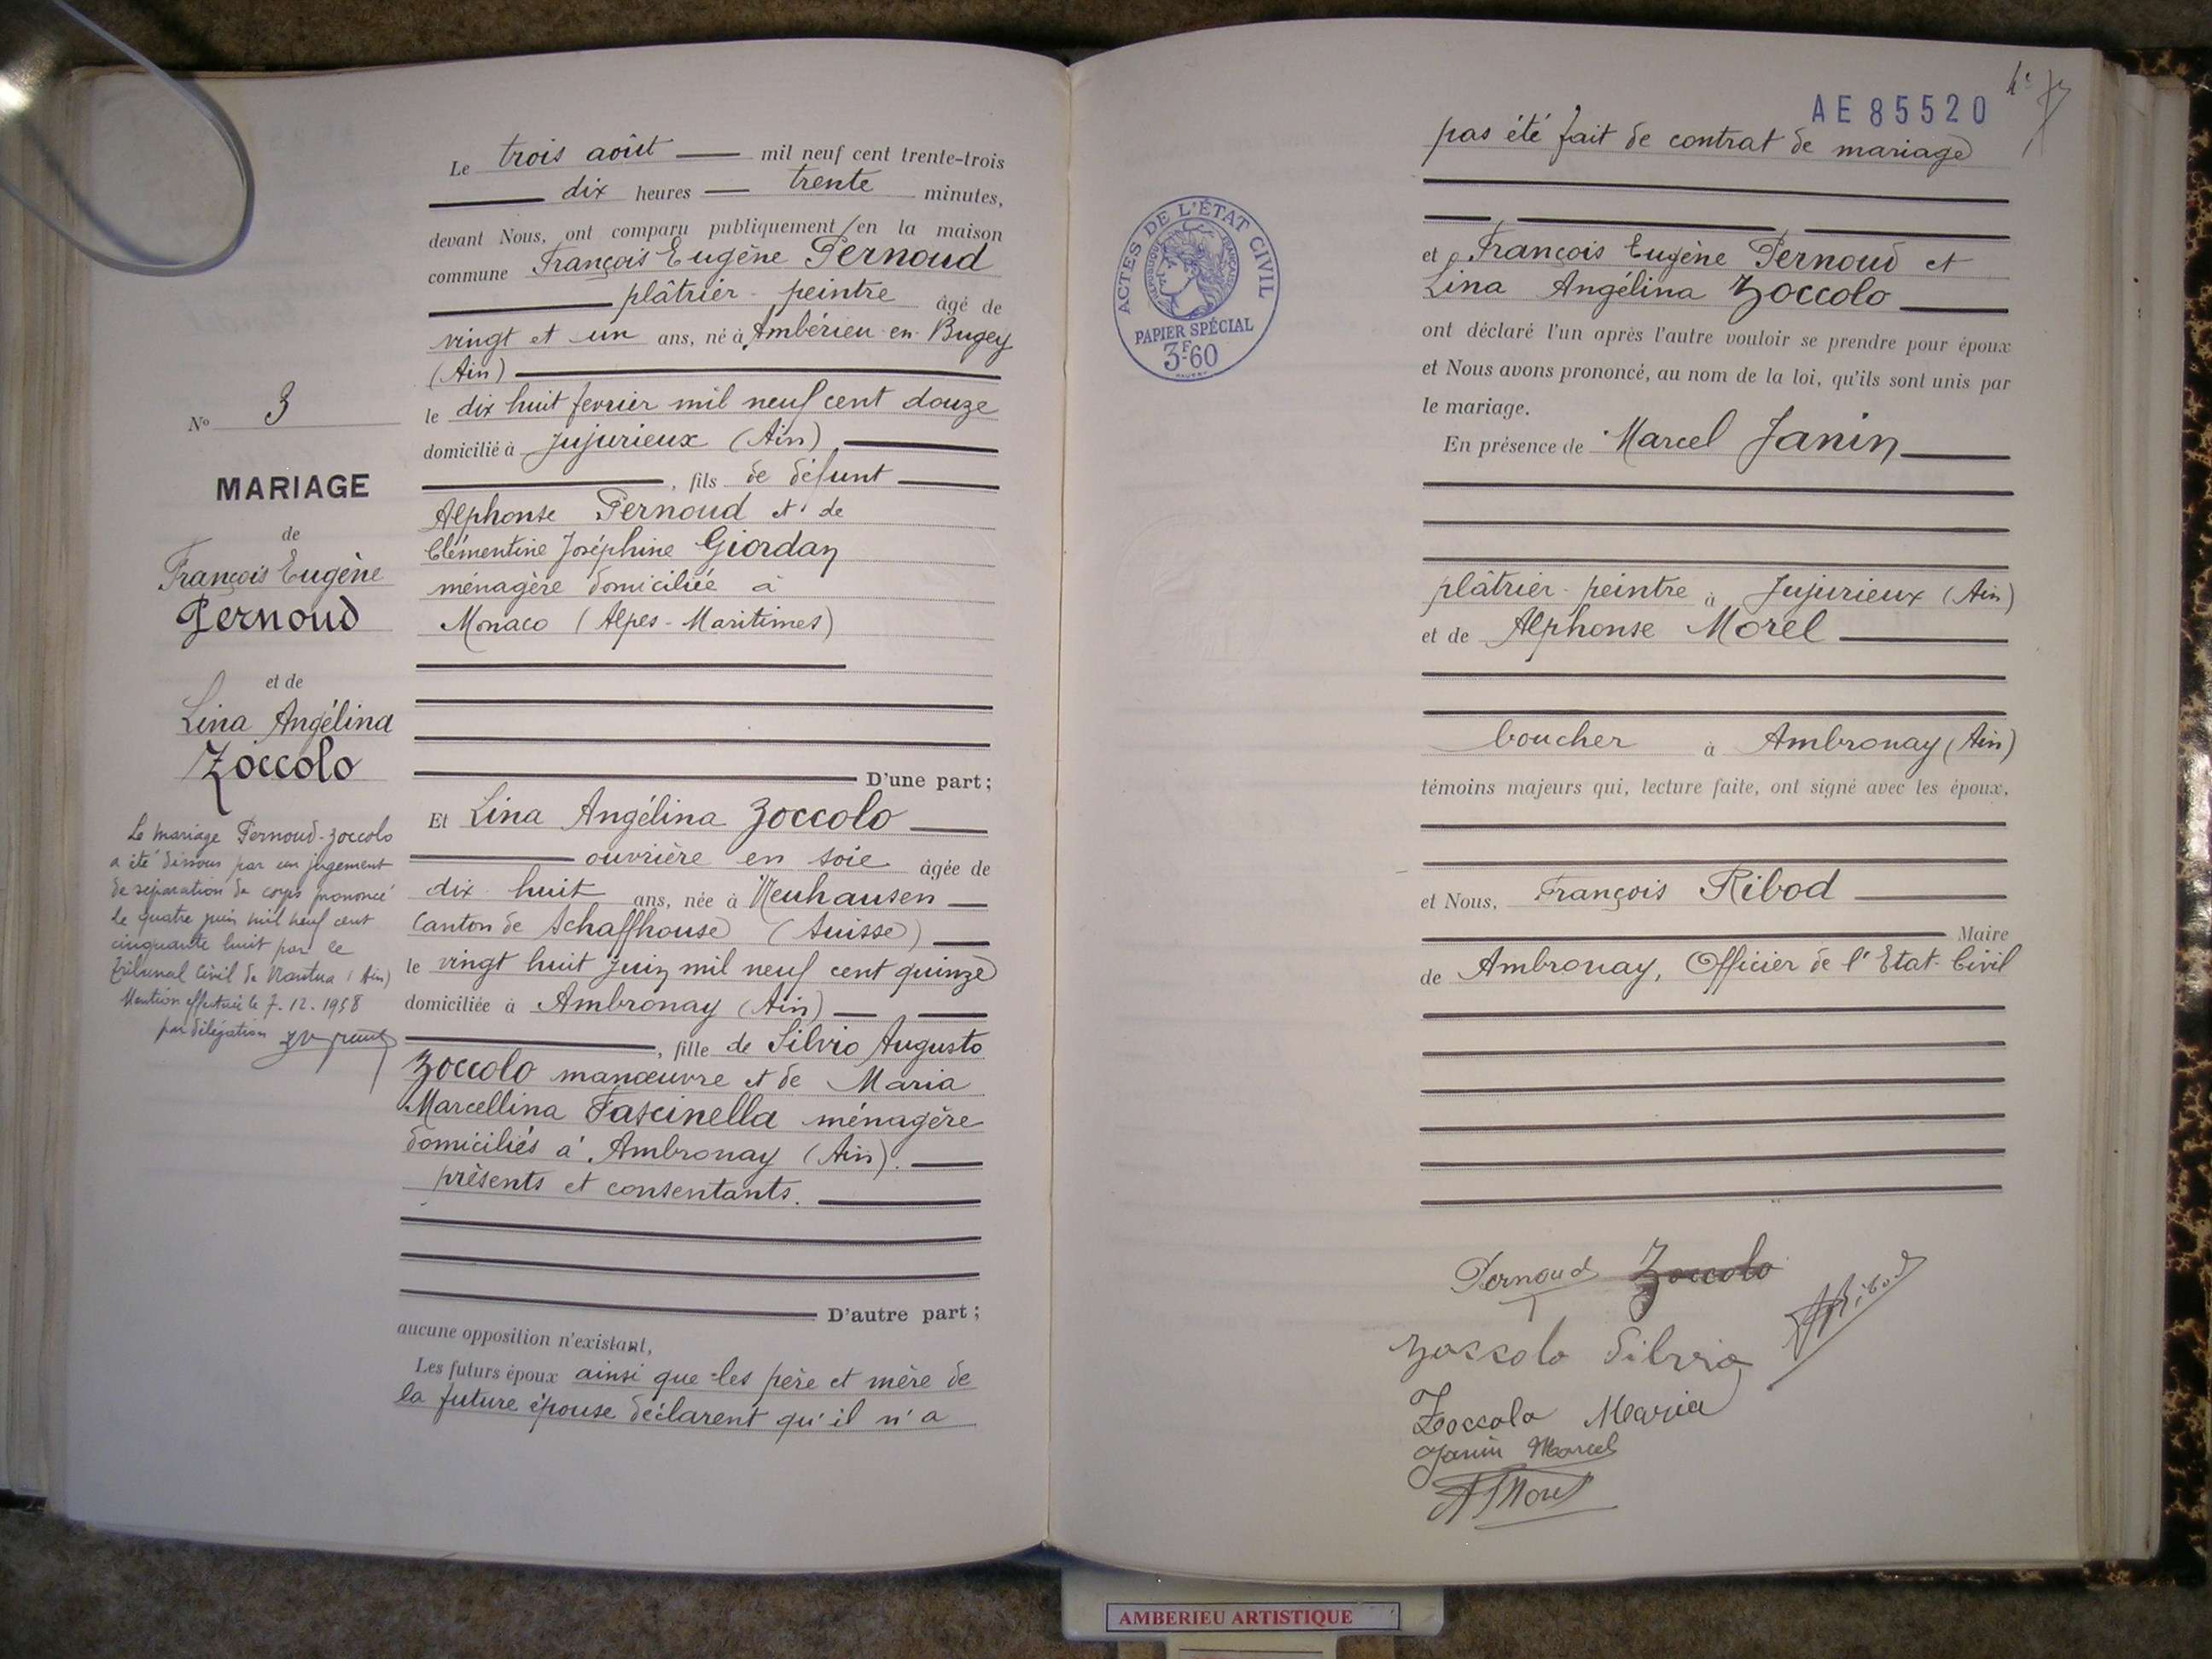 N° 3
MARIAGE
de
François Eugène
Pernoud
et de
Lina Angélina
Zoccolo
Le mariage Pernoud-Zoccolo
a été dissous par un jugement
de séparation de corps prononcé
le quatre juin mil neuf cent
cinquante huit par le
tribunal Civil de Nantua (Ain)
Mention effectuée le 7.12.1958
par délégation
Le trois août mil neuf cent trente-trois
dix heures trente minutes,
devant Nous, ont comparu publiquement en la maison
commune François Eugène Pernoud
plâtrier-peintre âgé de
vingt et un ans, né à Ambérieu-en-Bugey
(Ain)
le dix huit fevrier mil neuf cent douze
domicilié à Jujurieux (Ain)
, fils de défunt
Alphonse Pernoud et de
Clémentine Joséphine Giordan
ménagère domiciliée à
Monaco (Alpes-Maritimes)
D'une part;
Et Lina Angélina Zoccolo
ouvrière en soie âgée de
dix huit ans, née à Neuhausen
Canton de Schaffhouse (Suisse)
le vingt huit juin mil neuf cent quinze
domiciliée à Ambronay (Ain)
, fille de Silvio Augusto
Zoccolo manœuvre et de Maria
Marcellina Fascinella ménagère
domiciliés à Ambronay (Ain).
présents et consentants.
D'autre part;
aucune opposition n'existant,
Les futurs époux ainsi que les père et mère de
la future épouse déclarent qu'il n'a
AE 85520
pas été fait de contrat de mariage
ACTES DE L'ÉTAT CIVIL
RÉPUBLIQUE FRANÇAISE
PAPIER SPÉCIAL
3F.60
et François Eugène Pernoud et
Lina Angélina Zoccolo
ont déclaré l'un après l'autre vouloir se prendre pour époux
et Nous avons prononcé, au nom de la loi, qu'ils sont unis par
le mariage.
En présence de Marcel Janin
plâtrier-peintre à Jujurieux (Ain)
et de Alphonse Morel
boucher à Ambronay (Ain)
témoins majeurs qui, lecture faite, ont signé avec les époux,
et Nous, François Ribod
Maire
de Ambronay, Officier de l'Etat-Civil
Pernoud Zoccolo
Ribod
Zoccolo Silvio
Zoccolo Maria
Janin Marcel
A Morel
AMBERIEU ARTISTIQUE